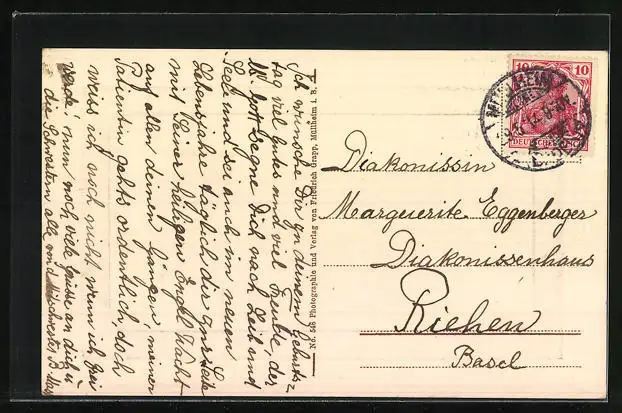 Ich wünsche Dir zu deinem Geburts=
tag viel gutes und viel Freude, der
lb. Gott segne Dich nach Leib und
Seele und sei auch im neuen
Lebensjahre täglich dir zur Seite
mit Seiner heiligen Engel Wacht
auf allen deinen Gängen, meinen
Patientin gehts ordentlich, doch
weiss ich noch nicht wenn ich frei
werde, nun noch viele Grüsse an dich u
die Schwestern alle von
No. 596 Photographie und Verlag von Friedrich Grupp, Müllheim i. B.
10 10
DEUTSCHES
Diakonissin
Marguerite Eggenberger
Diakonissenhaus
Riehen
Basel